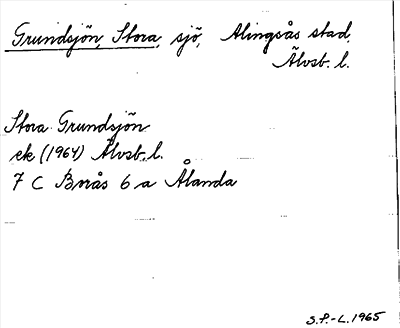 Grundsjön, Stora, sjö, Alingsås stad,
Älvsb. l.
Stora Grundsjön
ek (1964) Älvsb. l.
7 C Borås 6 a Ålanda
S.P.-L. 1965